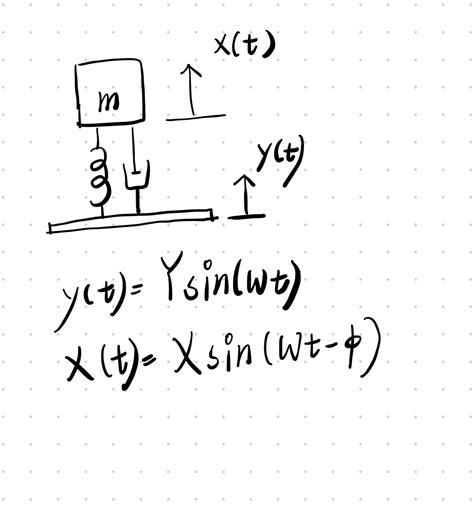 x(t)
m
y(t)
y(t)= Ysin(wt)
x(t)= Xsin(wt-φ)